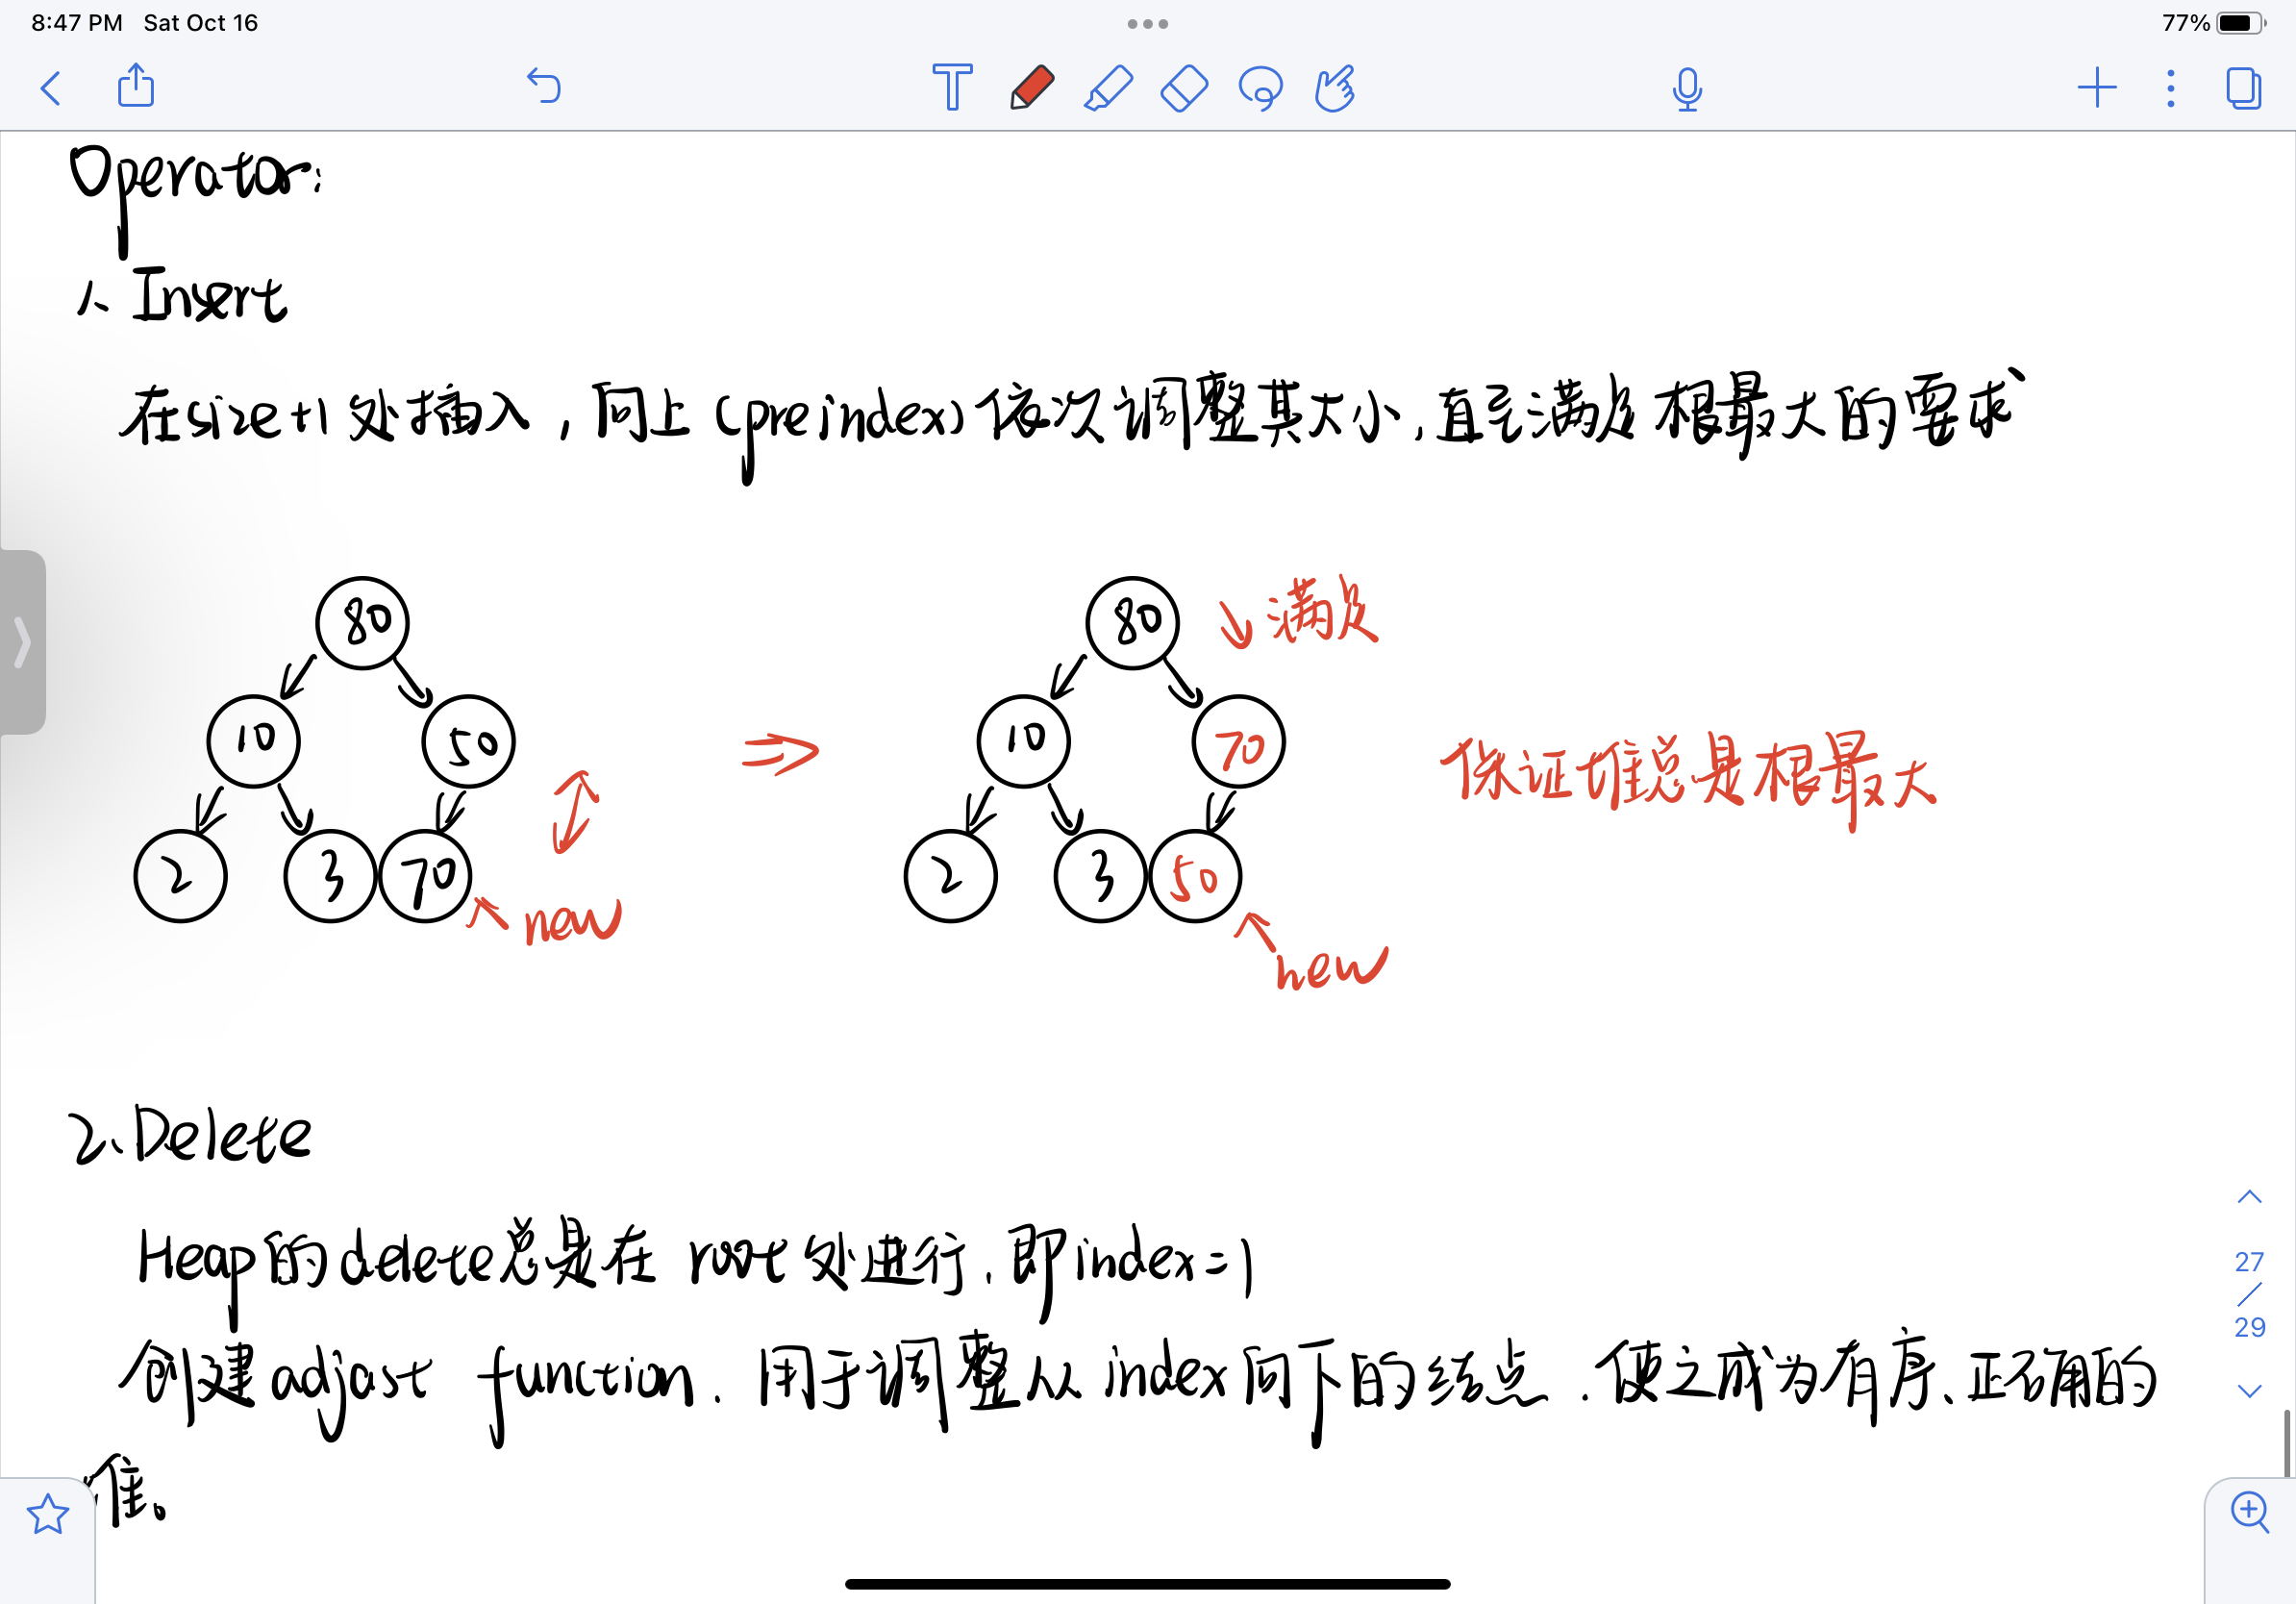 8:47 PM Sat Oct 16
77%
Operator:
1、Insert
在size+1处插入，向上(preindex)依次调整其大小，直至满足根最大的要求
80
80
↓满足
10
50
⇒
10
70
保证堆总是根最大
2
3
70
2
3
50
new
new
2、Delete
Heap的delete总是在root处进行，即index=1
27
/
29
创建adjast function，用于调整从index向下的结点，使之成为有序、正确的
堆。